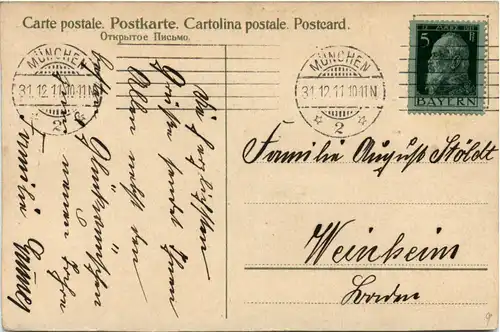 Carte postale. Postkarte. Cartolina postale. Postcard.
Открытое Письмо.
MÜNCHEN
31.12.11.10-11N
2
MÜNCHEN
31.12.11.10-11N
2
5 5
BAYERN
Die herzlichsten
Grüße sendet Ihnen
Allen nebst den
Glückwünschen
neuen Jahre
Familie
Familie August Stöldt
Weinheim
Baden